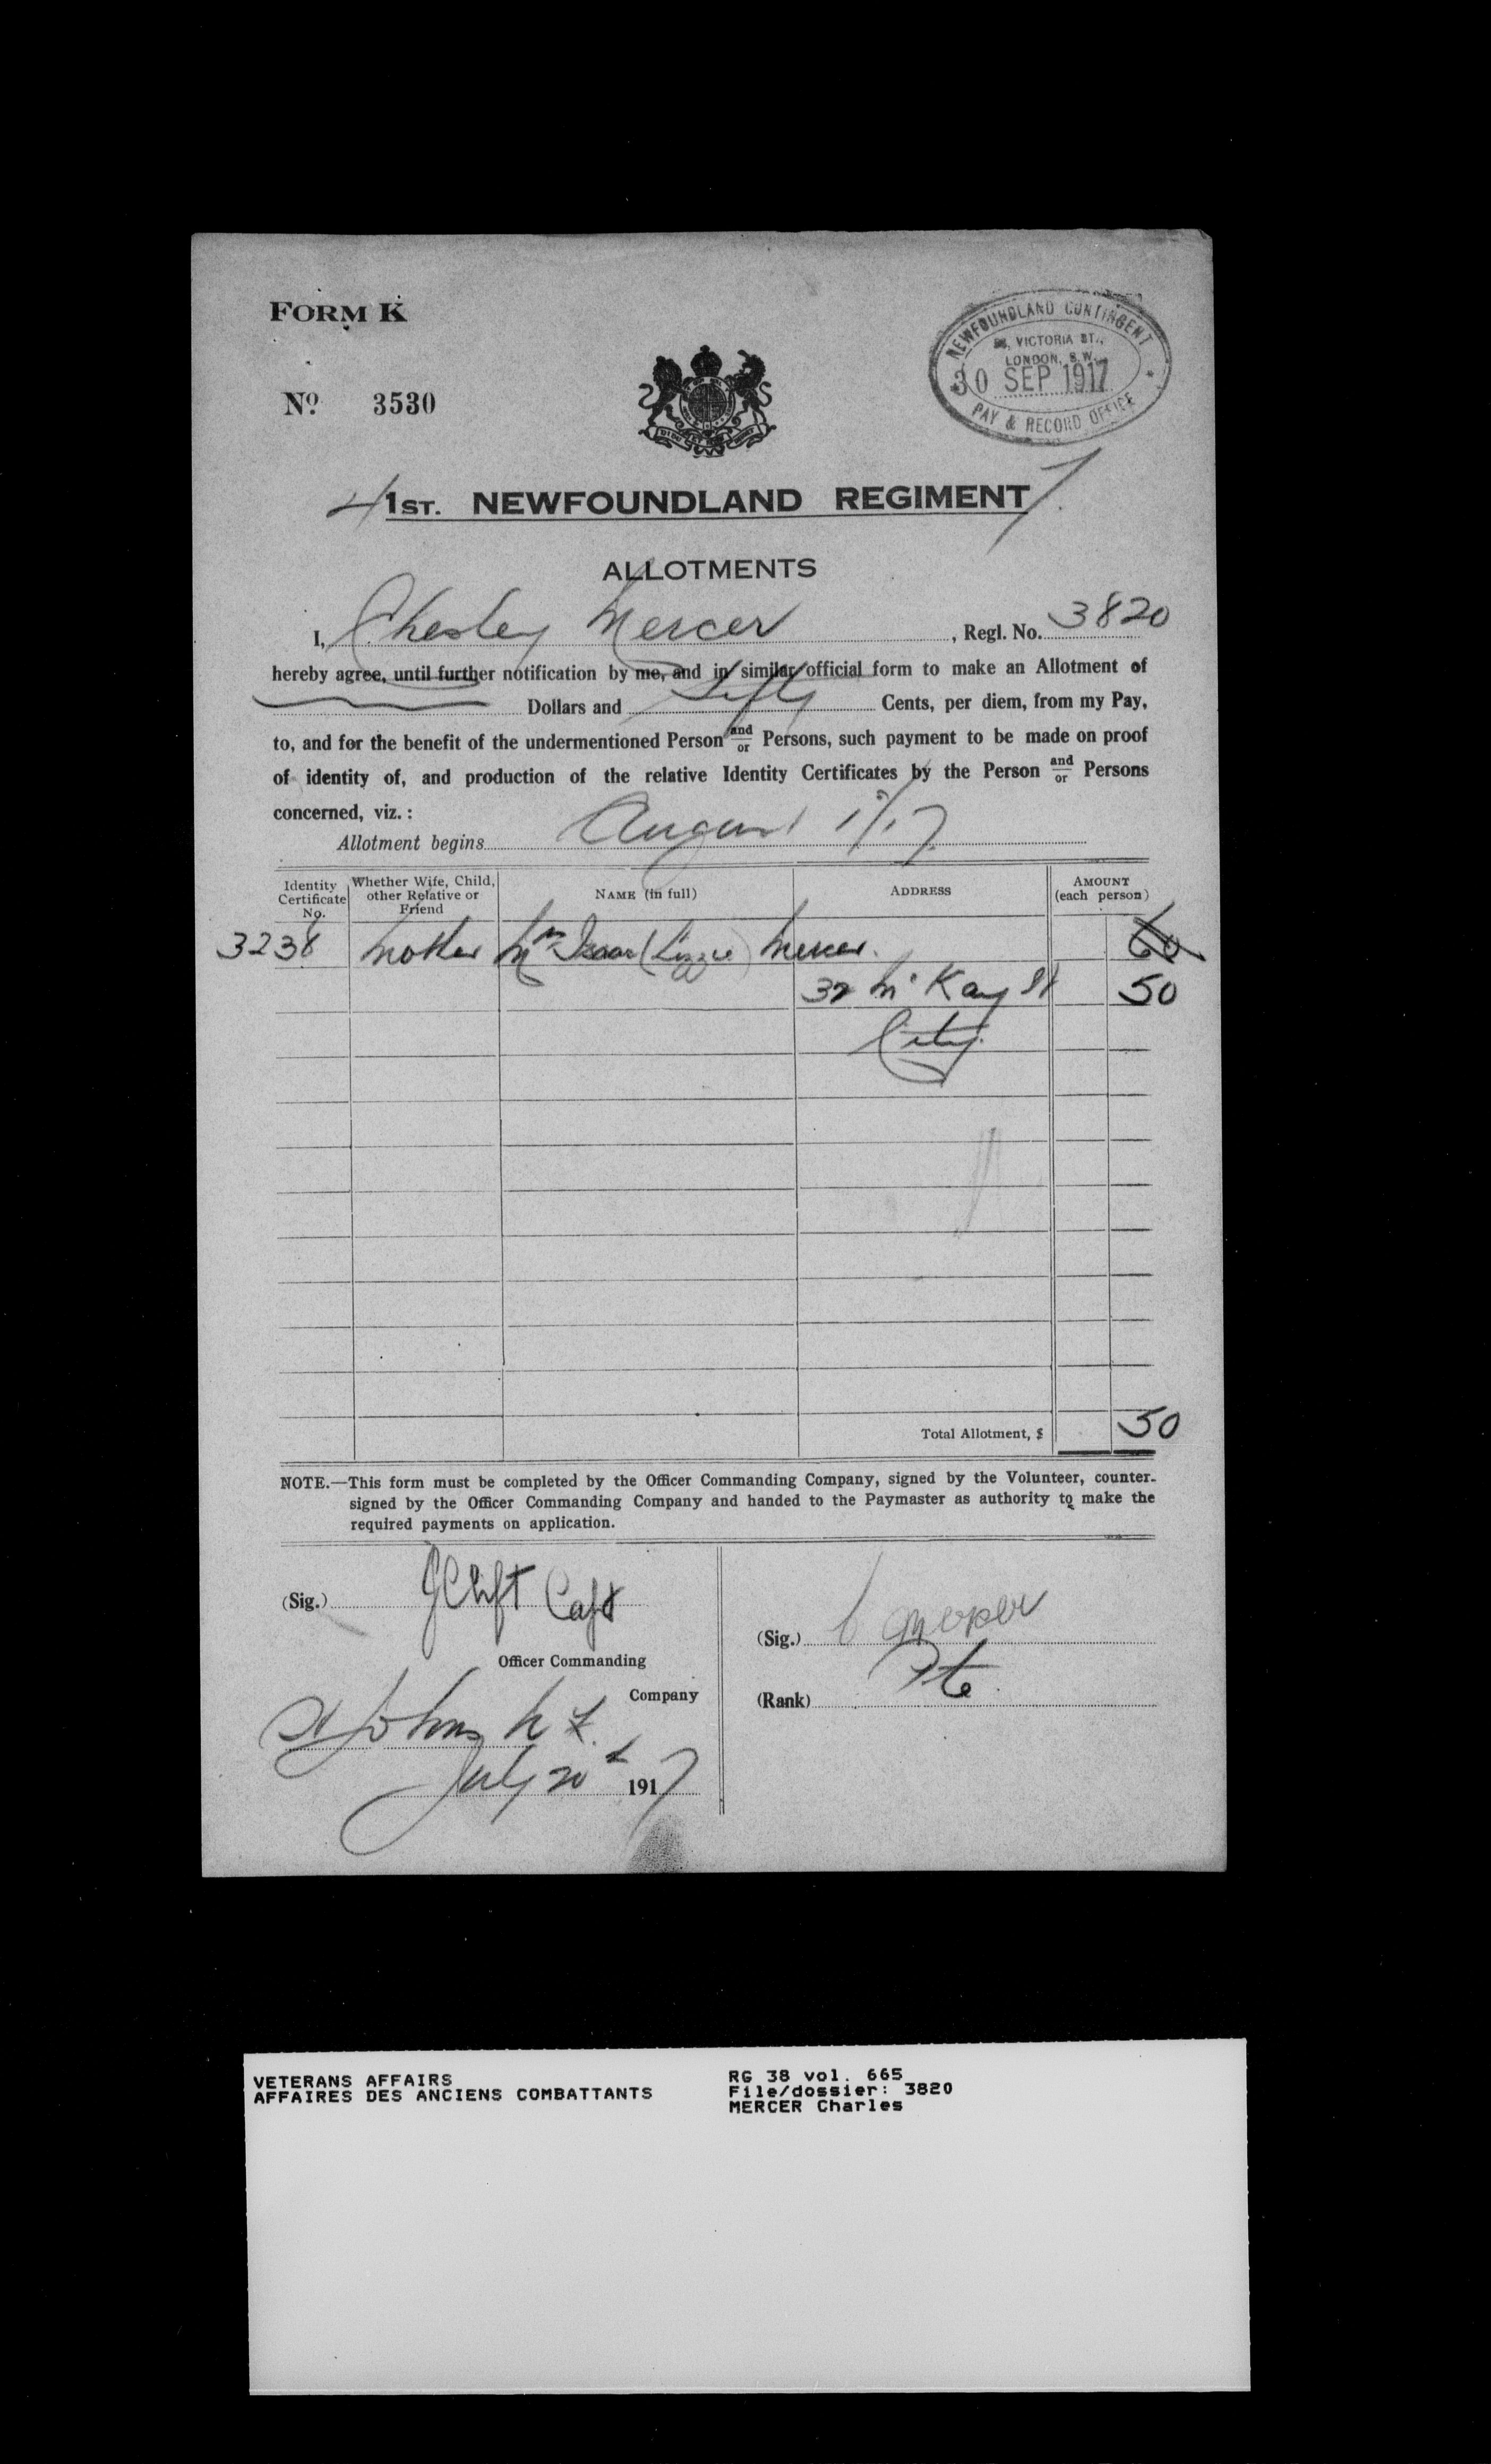 FORM K
NEWFOUNDLAND CONTINGENT
VICTORIA ST.,
LONDON, S.W.
30 SEP 1917
PAY & RECORD OFFICE
No. 3530
1ST. NEWFOUNDLAND REGIMENT
ALLOTMENTS
I, Chesley Mercer, Regl. No. 3820
hereby agree, until further notification by me, and in similar official form to make an Allotment of
Dollars and Fifty Cents, per diem, from my Pay,
to, and for the benefit of the undermentioned Person and/or Persons, such payment to be made on proof
of identity of, and production of the relative Identity Certificates by the Person and/or Persons
concerned, viz.:
Allotment begins August 1/17.
Identity Certificate No. Whether Wife, Child, other Relative or Friend NAME (in full) ADDRESS AMOUNT (each person)
3238 Mother Mrs Isaac (Lizzie) Mercer. 60
32 McKay St 50
City.
Total Allotment, $ 50
NOTE.—This form must be completed by the Officer Commanding Company, signed by the Volunteer, counter-
signed by the Officer Commanding Company and handed to the Paymaster as authority to make the
required payments on application.
(Sig.) J Clift Capt
Officer Commanding
Company
(Sig.) C Mercer
(Rank) Pte.
St Johns N F.
July 20th 1917
VETERANS AFFAIRS
AFFAIRES DES ANCIENS COMBATTANTS
RG 38 vol. 665
File/dossier: 3820
MERCER Charles